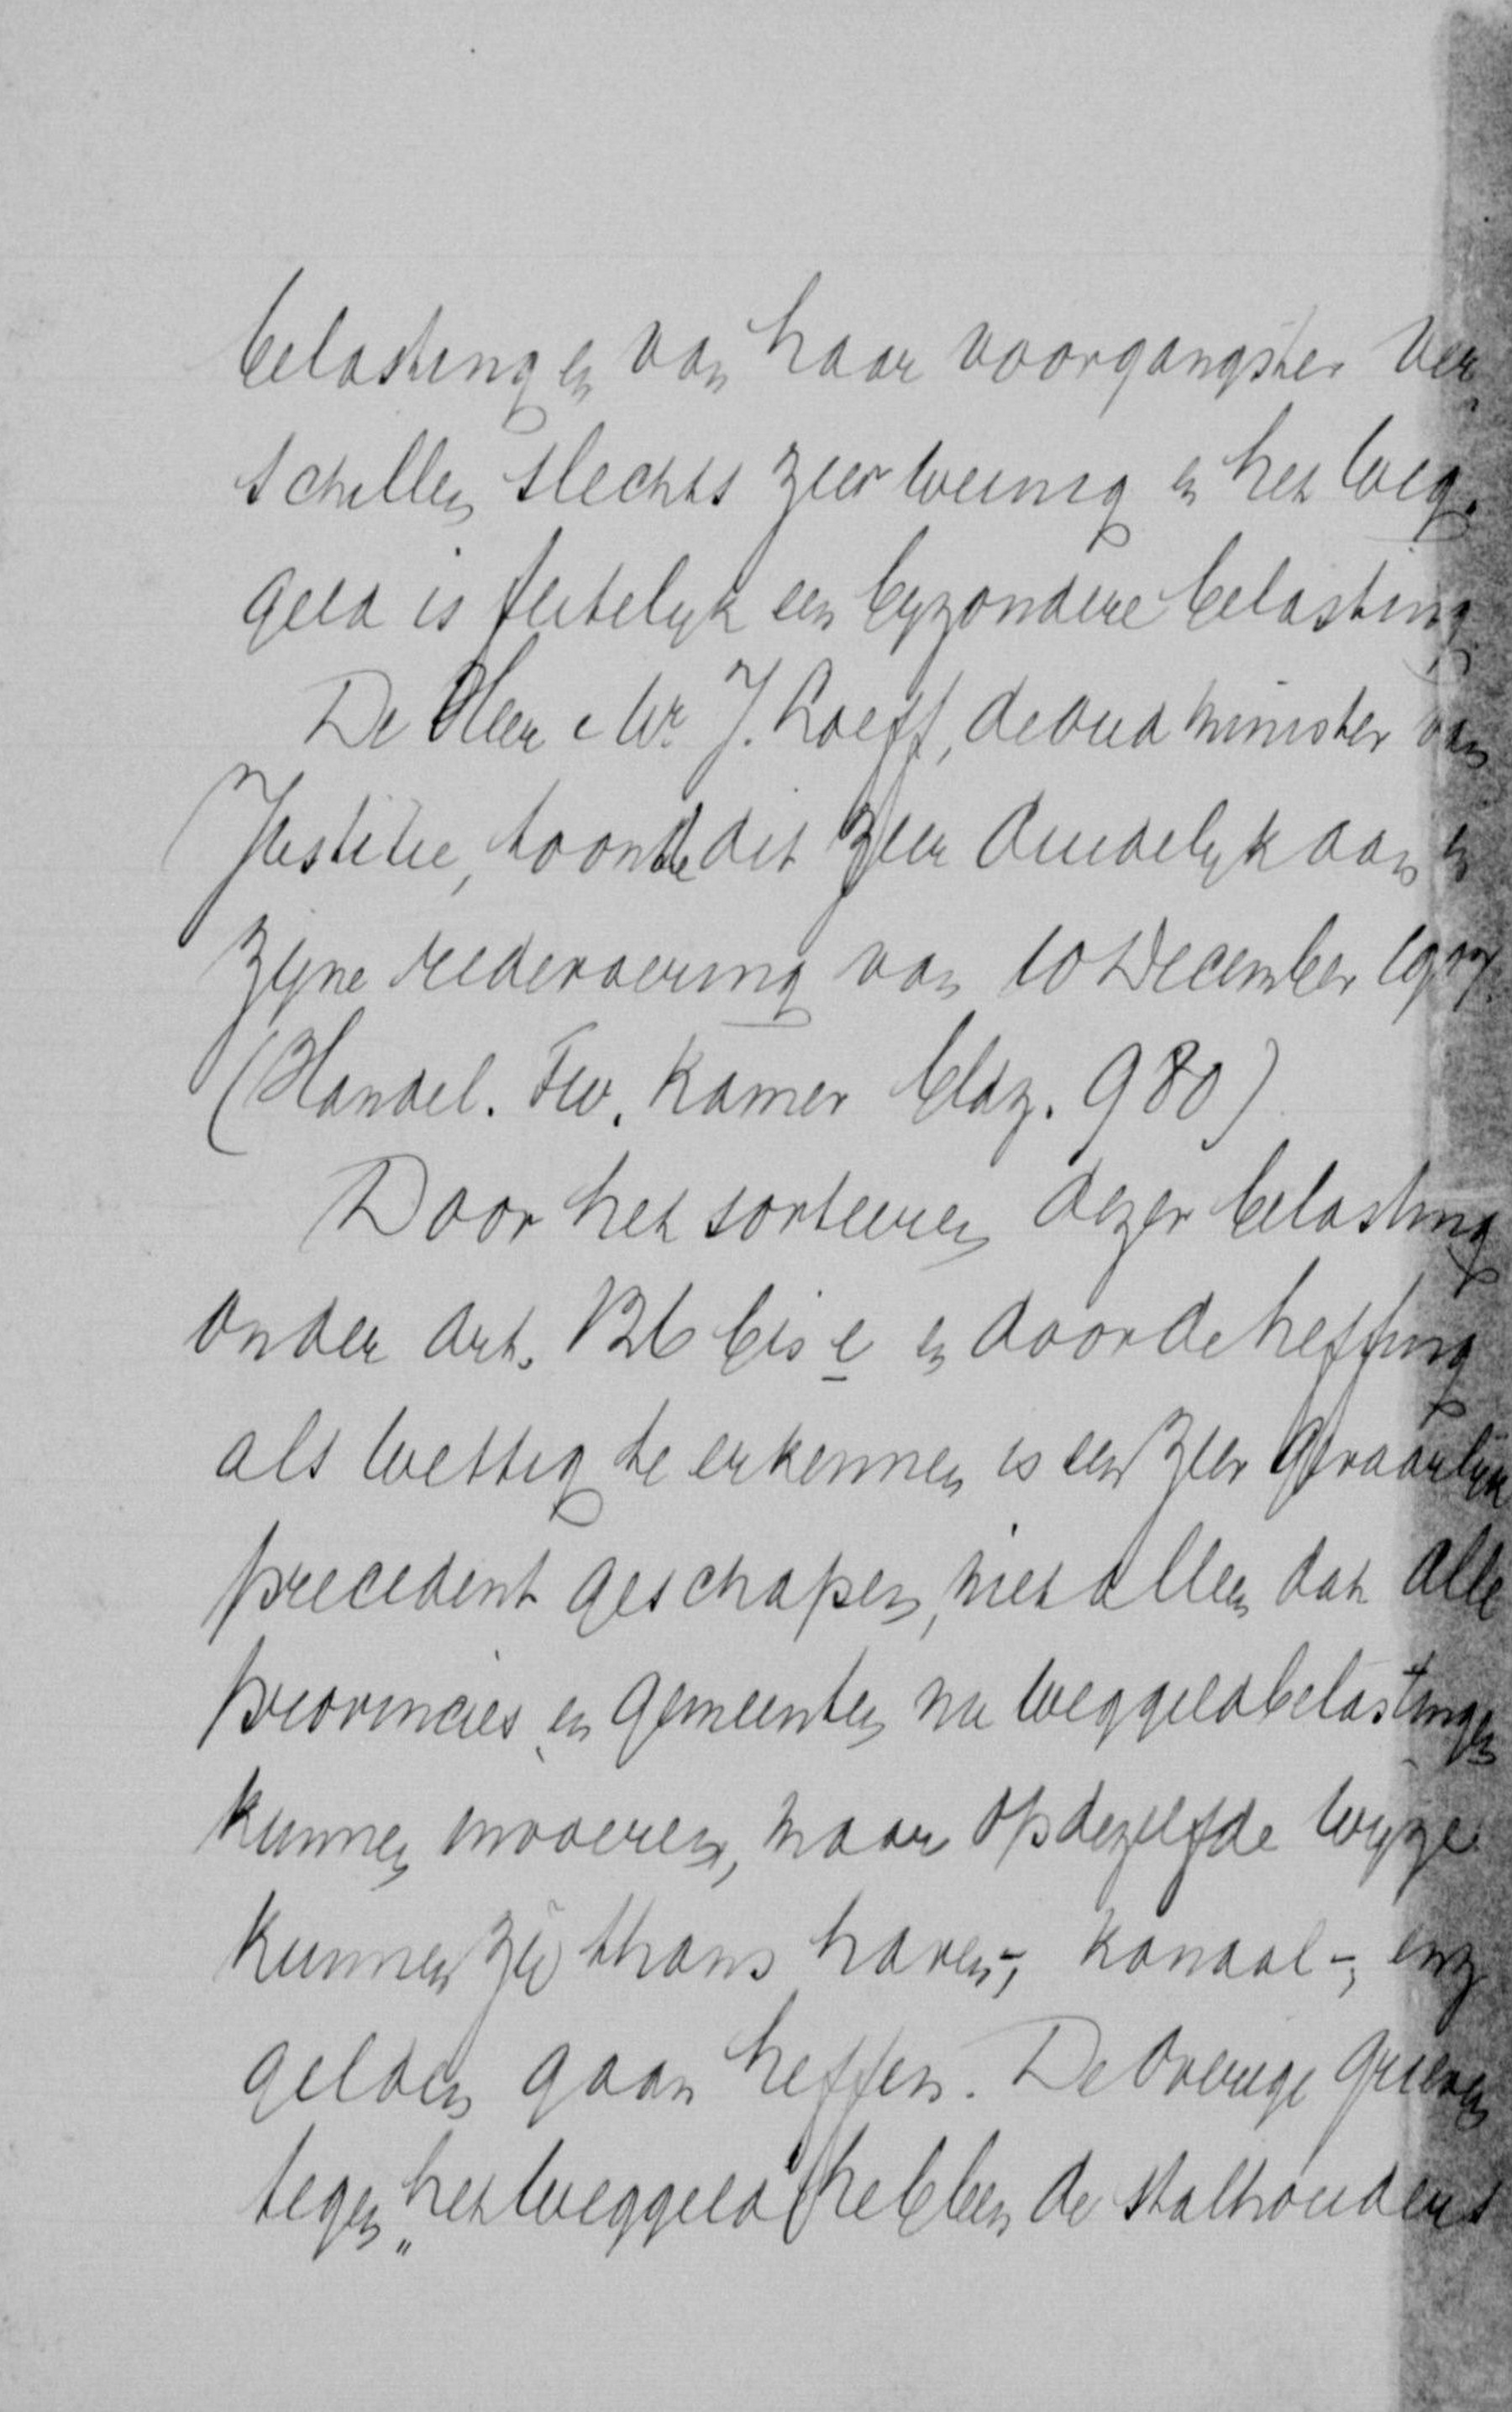 belastingen van haar voorgangster ver
schillen slechts zeer weinig en het weg-
geld is feitelyk een byzondere belasting
De Heer Mr. J. Loeff, de oud minister van
Justitie, toonde dit zeer duidelyk aan in
zyne redevoering van 10 December 1907.
(Handel. Tw. Kamer bldz. 980)
Door het sorteeren dezer belasting
onder art. 126 bis e en door de heffing
als wettig te erkennen is een zeer gevaarlyk
precedent geschapen, niet alleen dat alle
provincies en gemeenten nu weggeldbelastingen
kunnen invoeren, maar op dezelfde wyze
kunnen zy thans haven-, kanaal-, enz
gelden gaan heffen. De overige grieven
tegen „het weggeld" hebben de stalhouders